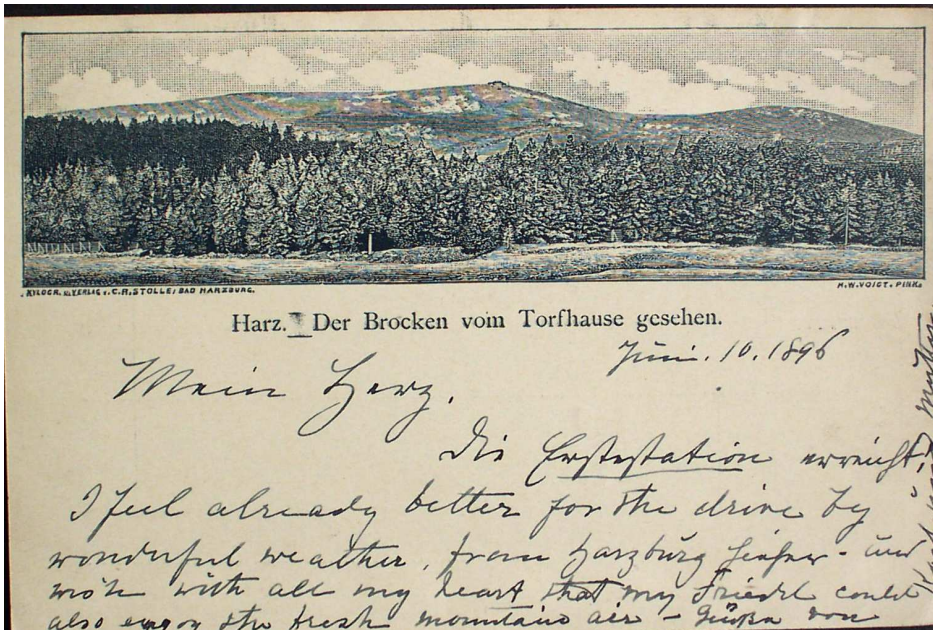 XYLOGR. u. VERLAG v. C.R. STOLLE, BAD HARZBURG.
H.W. VOIGT. PINX.
Harz. Der Brocken vom Torfhause gesehen.
Juni. 10. 1896
Mein Herz.
Die Erstestation erreicht!
I feel already better for the drive by
wonderful weather, from Harzburg hieher - und
wish with all my heart that my Friedel could
also enjoy the fresh mountain air - Grüße von